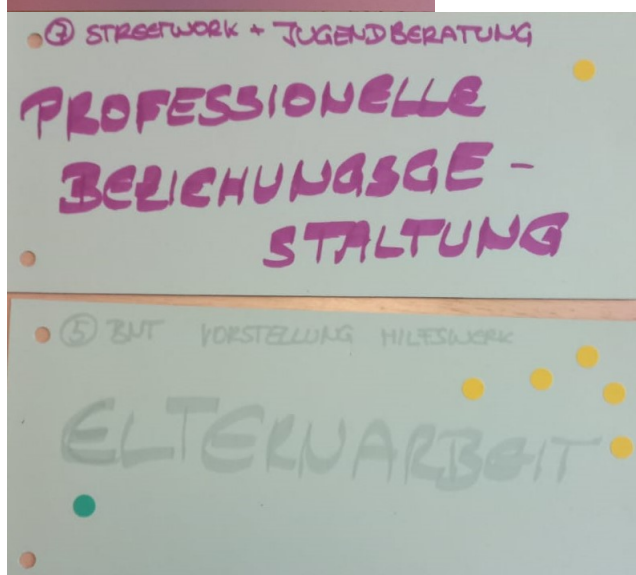 ⑦ STREETWORK + JUGENDBERATUNG
PROFESSIONELLE
BEZIEHUNGSGE -
STALTUNG
⑤ BUT VORSTELLUNG HILFSWERK
ELTERNARBEIT